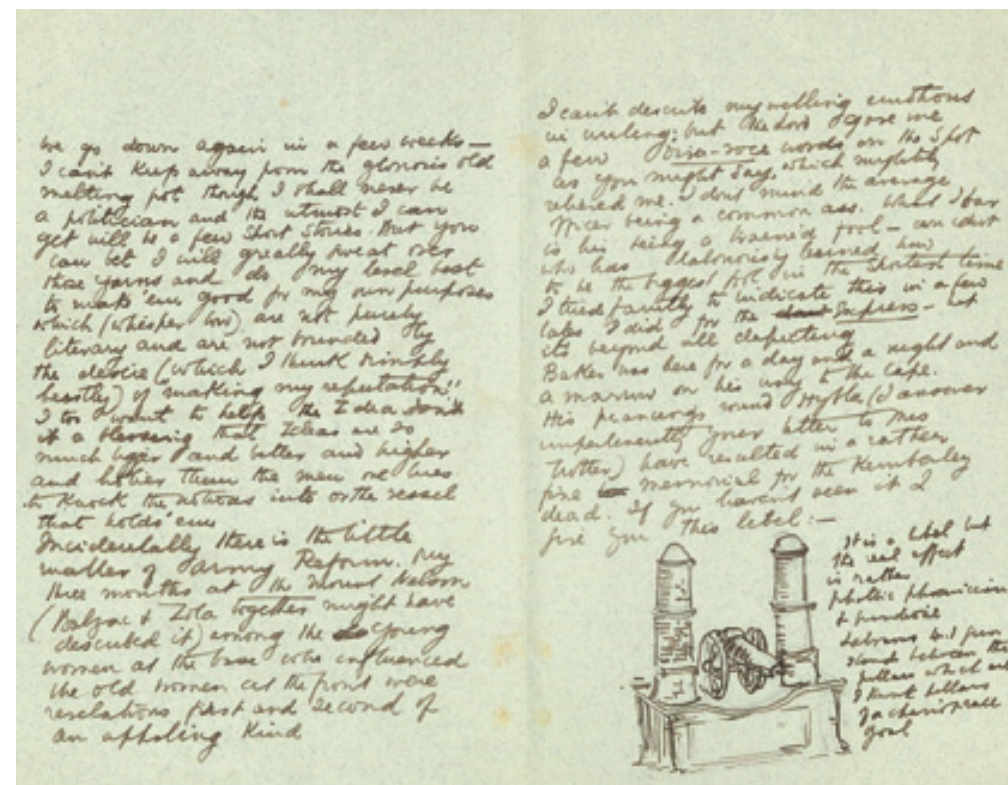 we go down again in a few weeks —
I can't keep away from the glorious old
melting pot though I shall never be
a politician and the utmost I can
get will be a few short stories. But you
can bet I will greally sweat over
those yarns and do my level best
to make 'em good for my own purposes
which (whisper low) are not purely
literary and are not bounded by
the desire (which I think simply
beastly) of "making my reputation".
I too want to help the Idea. Isn't
it a blessing that Ideas are so
much bigger and better and higher
and holier them the men one tries
to knock the notions into or the vessel
that holds 'em
Incidentally there is the little
matter of Army Reform. My
three months at the Mount Nelson
(Balzac & Zola together might have
described it) among the young
women at the base who influenced
the old women at the front were
revelations first and second of
an appaling kind
I can't describe my emotions
in writing; but the Lord gave me
a few words on the spot
as you might say, which mightily
relieved me. I don't mind the average
officer being a common ass. What I bar
is his being a trained fool — an idiot
who has laboriously learned how
to be the biggest fool in the shortest time
I tried faintly to indicate this in a few
tales I did for the Express — but
its beyond all depicting
Baker was here for a day and a night and
a marrow on his way to the Cape.
His prancings round Hybla (I answer
impertinently your letter to Mrs
Trotter) have resulted in a rather
fine memorial for the Kimberley
dead. If you haven't seen it I
give you this libel: —
It is a libel but
the real effect
is rather
phallic phoenician
&
stands between the
pillars which are
I think pillars
goal